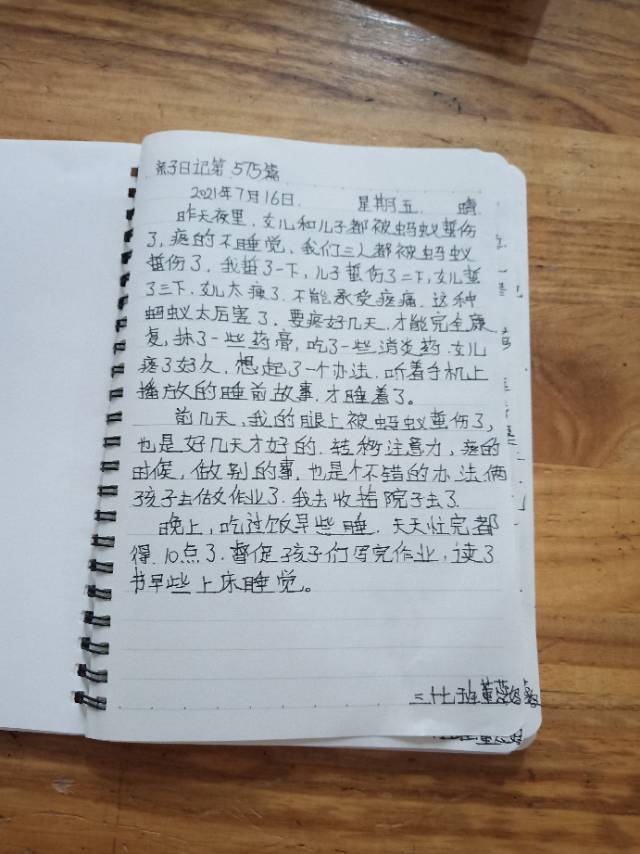 亲子日记第575篇
2021年7月16日 星期五 晴
昨天夜里，女儿和儿子都被蚂蚁蜇伤
了，疼的不睡觉、我们三人都被蚂蚁
蜇伤了．我蜇了一下，儿子蜇伤了二下，女儿蜇
了三下．女儿太痩了．不能承受疼痛．这种
蚂蚁太厉害了．要疼好几天，才能完全康
复，抹了一些药膏，吃了一些消炎药．女儿
疼了好久．想起了一个办法．听着手机上
播放的睡前故事，才睡着了。
前几天，我的腿上被蚂蚁蜇伤了，
也是好几天才好的．转移注意力，疼的
时候，做别的事．也是个不错的办法．俩
孩子去做作业了．我去收拾院子去了．
晚上，吃过饭早些睡．天天忙完都
得10点了．督促孩子们写完作业，读了
书早些上床睡觉。
三十七班董